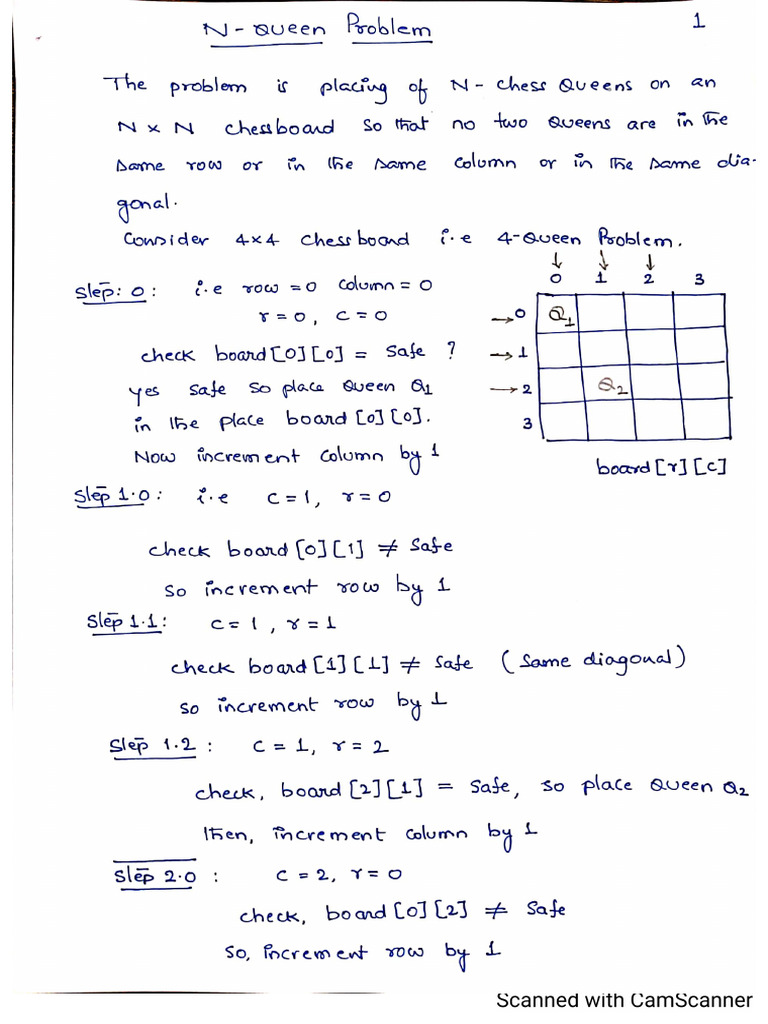 N-Queen Problem
1
The problem is placing of N-chess Queens on an
N x N chessboard so that no two Queens are in the
same row or in the same column or in the same dia-
gonal.
Consider 4x4 chessboard i.e 4-Queen Problem.
Step: 0: i.e row = 0 column = 0
r = 0, c = 0
check board [0][0] = safe ?
yes safe so place Queen Q1
in the place board [0][0].
Now increment column by 1
↓ ↓ ↓
0 1 2 3
→ 0 Q1
→ 1
→ 2 Q2
3
board[r][c]
Step 1.0: i.e c = 1, r = 0
check board [0][1] ≠ safe
so increment row by 1
Step 1.1: c = 1, r = 1
check board [1][1] ≠ safe (same diagonal)
so increment row by 1
Step 1.2: c = 1, r = 2
check, board [2][1] = safe, so place Queen Q2
then, increment column by 1
Step 2.0: c = 2, r = 0
check, board [0][2] ≠ safe
so, increment row by 1
Scanned with CamScanner